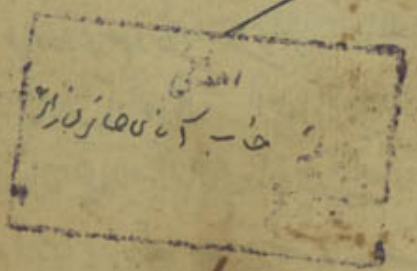 اهدائی
جناب آقای حائری زاده